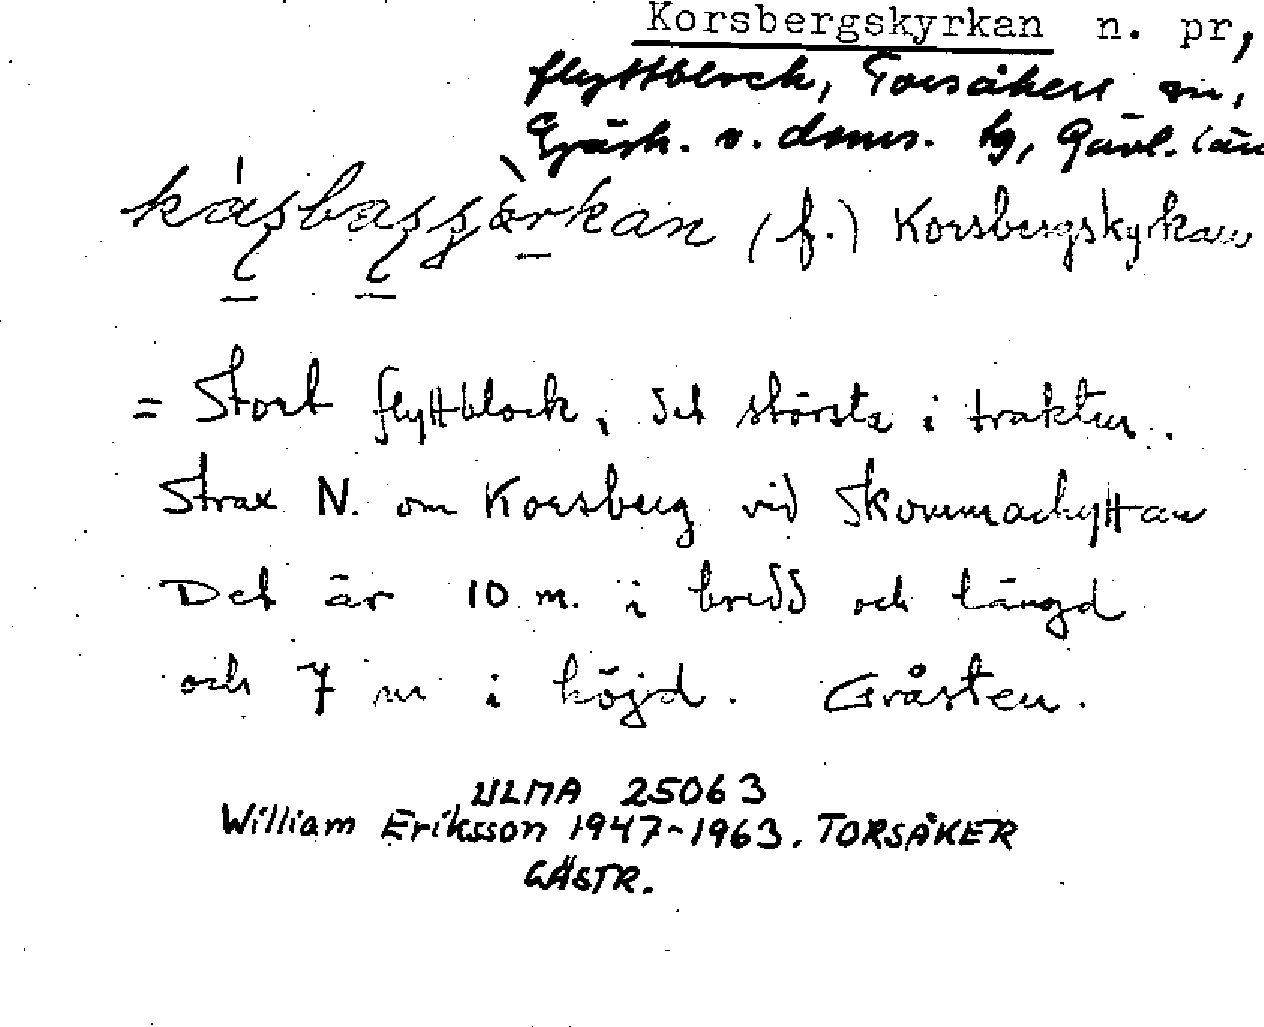 Korsbergskyrkan n. pr,
flyttblock, Torsåkers sn,
Gästr. v. doms. tg, Gävl. län
(f.) Korsbergskyrkan
= Stort flyttblock, det största i trakten.
Strax N. om Korsberg vid Skommarhyttan
Det är 10 m. i bredd och längd
och 7 m i höjd. Gråsten.
ULMA 25063
William Eriksson 1947-1963. TORSÅKER
GÄSTR.